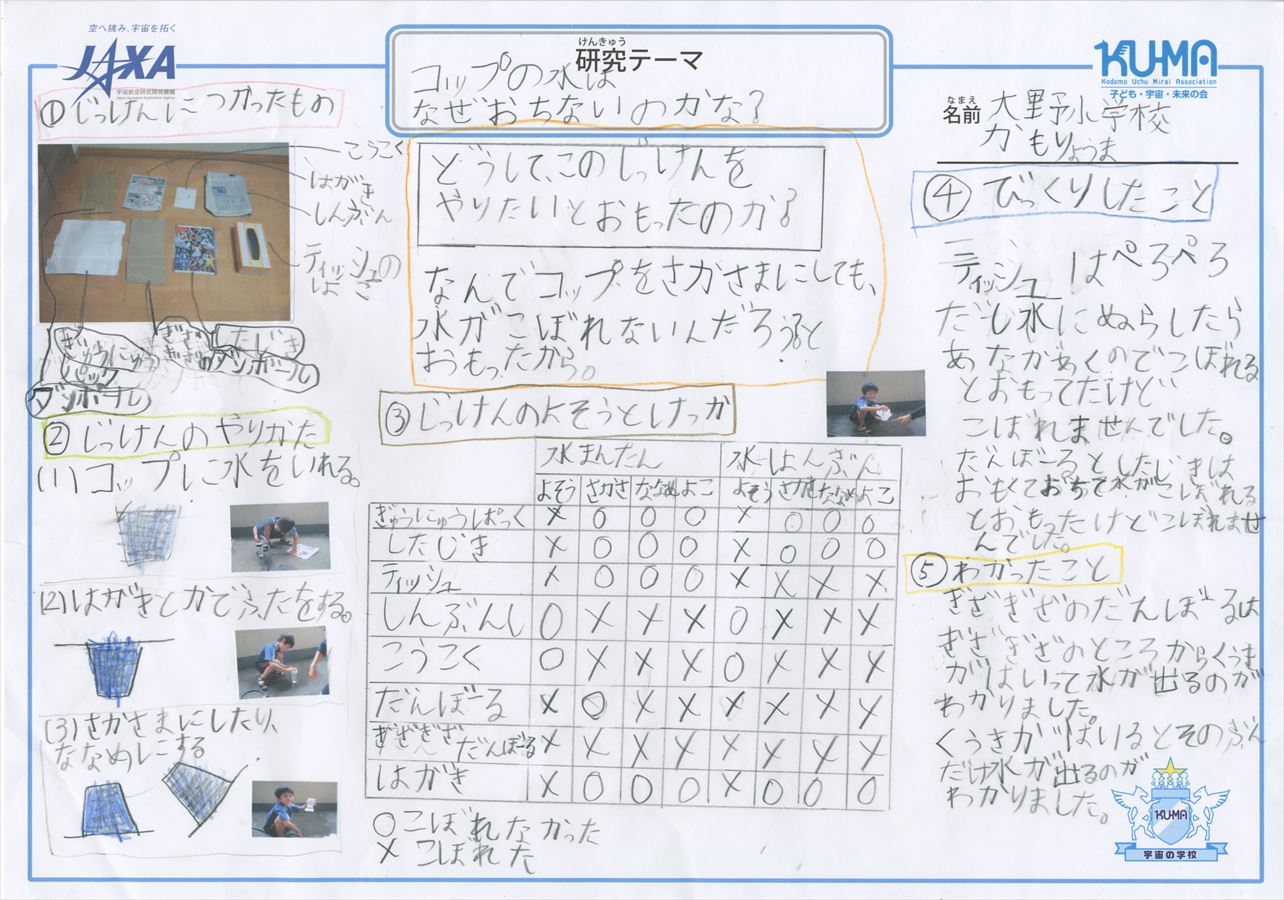 空へ挑み、宇宙を拓く
JAXA
宇宙航空研究開発機構
Japan Aerospace Exploration Agency
けんきゅう
研究テーマ
コップの水は
なぜおちないのかな?
KU-MA
Kodomo Uchu Mirai Association
子ども・宇宙・未来の会
なまえ
名前
大野小学校
かもりょうま
①じっけんにつかったもの
こうこく
はがき
しんぶん
ティッシュの
はこ
ぎゅうにゅう
パック
ぎざ
ぎざ
のダンボール
したじき
ダンボール
②じっけんのやりかた
(1)コップに水をいれる。
(2)はがきとかでふたをする。
(3)さかさまにしたり、
ななめにする
どうして、このじっけんを
やりたいとおもったのか?
なんでコップをさかさまにしても、
水がこぼれないんだろうと
おもったから。
③じっけんのよそうとけっか
水まんたん 水はんぶん
よそう さかさ ななめ よこ よそう さかさ ななめ よこ
ぎゅうにゅうぱっく × ○ ○ ○ × ○ ○ ○
したじき × ○ ○ ○ × ○ ○ ○
ティッシュ × ○ ○ ○ × × × ×
しんぶんし ○ × × × ○ × × ×
こうこく ○ × × × ○ × × ×
だんぼーる × ○ × × × × × ×
ぎざぎざだんぼーる × × × × × × × ×
はがき × ○ ○ ○ × ○ ○ ○
○こぼれなかった
×こぼれた
④びっくりしたこと
ティッシュはぺろぺろ
だし水にぬらしたら
あながあくのでこぼれる
とおもってたけど
こぼれませんでした。
だんぼーるとしたじきは
おもくておちて水がこぼれる
とおもったけどこぼれませ
んでした。
⑤わかったこと
ぎざぎざのだんぼーるは
ぎざぎざのところからくうき
がはいって水が出るのが
わかりました。
くうきがはいるとそのぶん
だけ水が出るのが
わかりました。
KU-MA
宇宙の学校